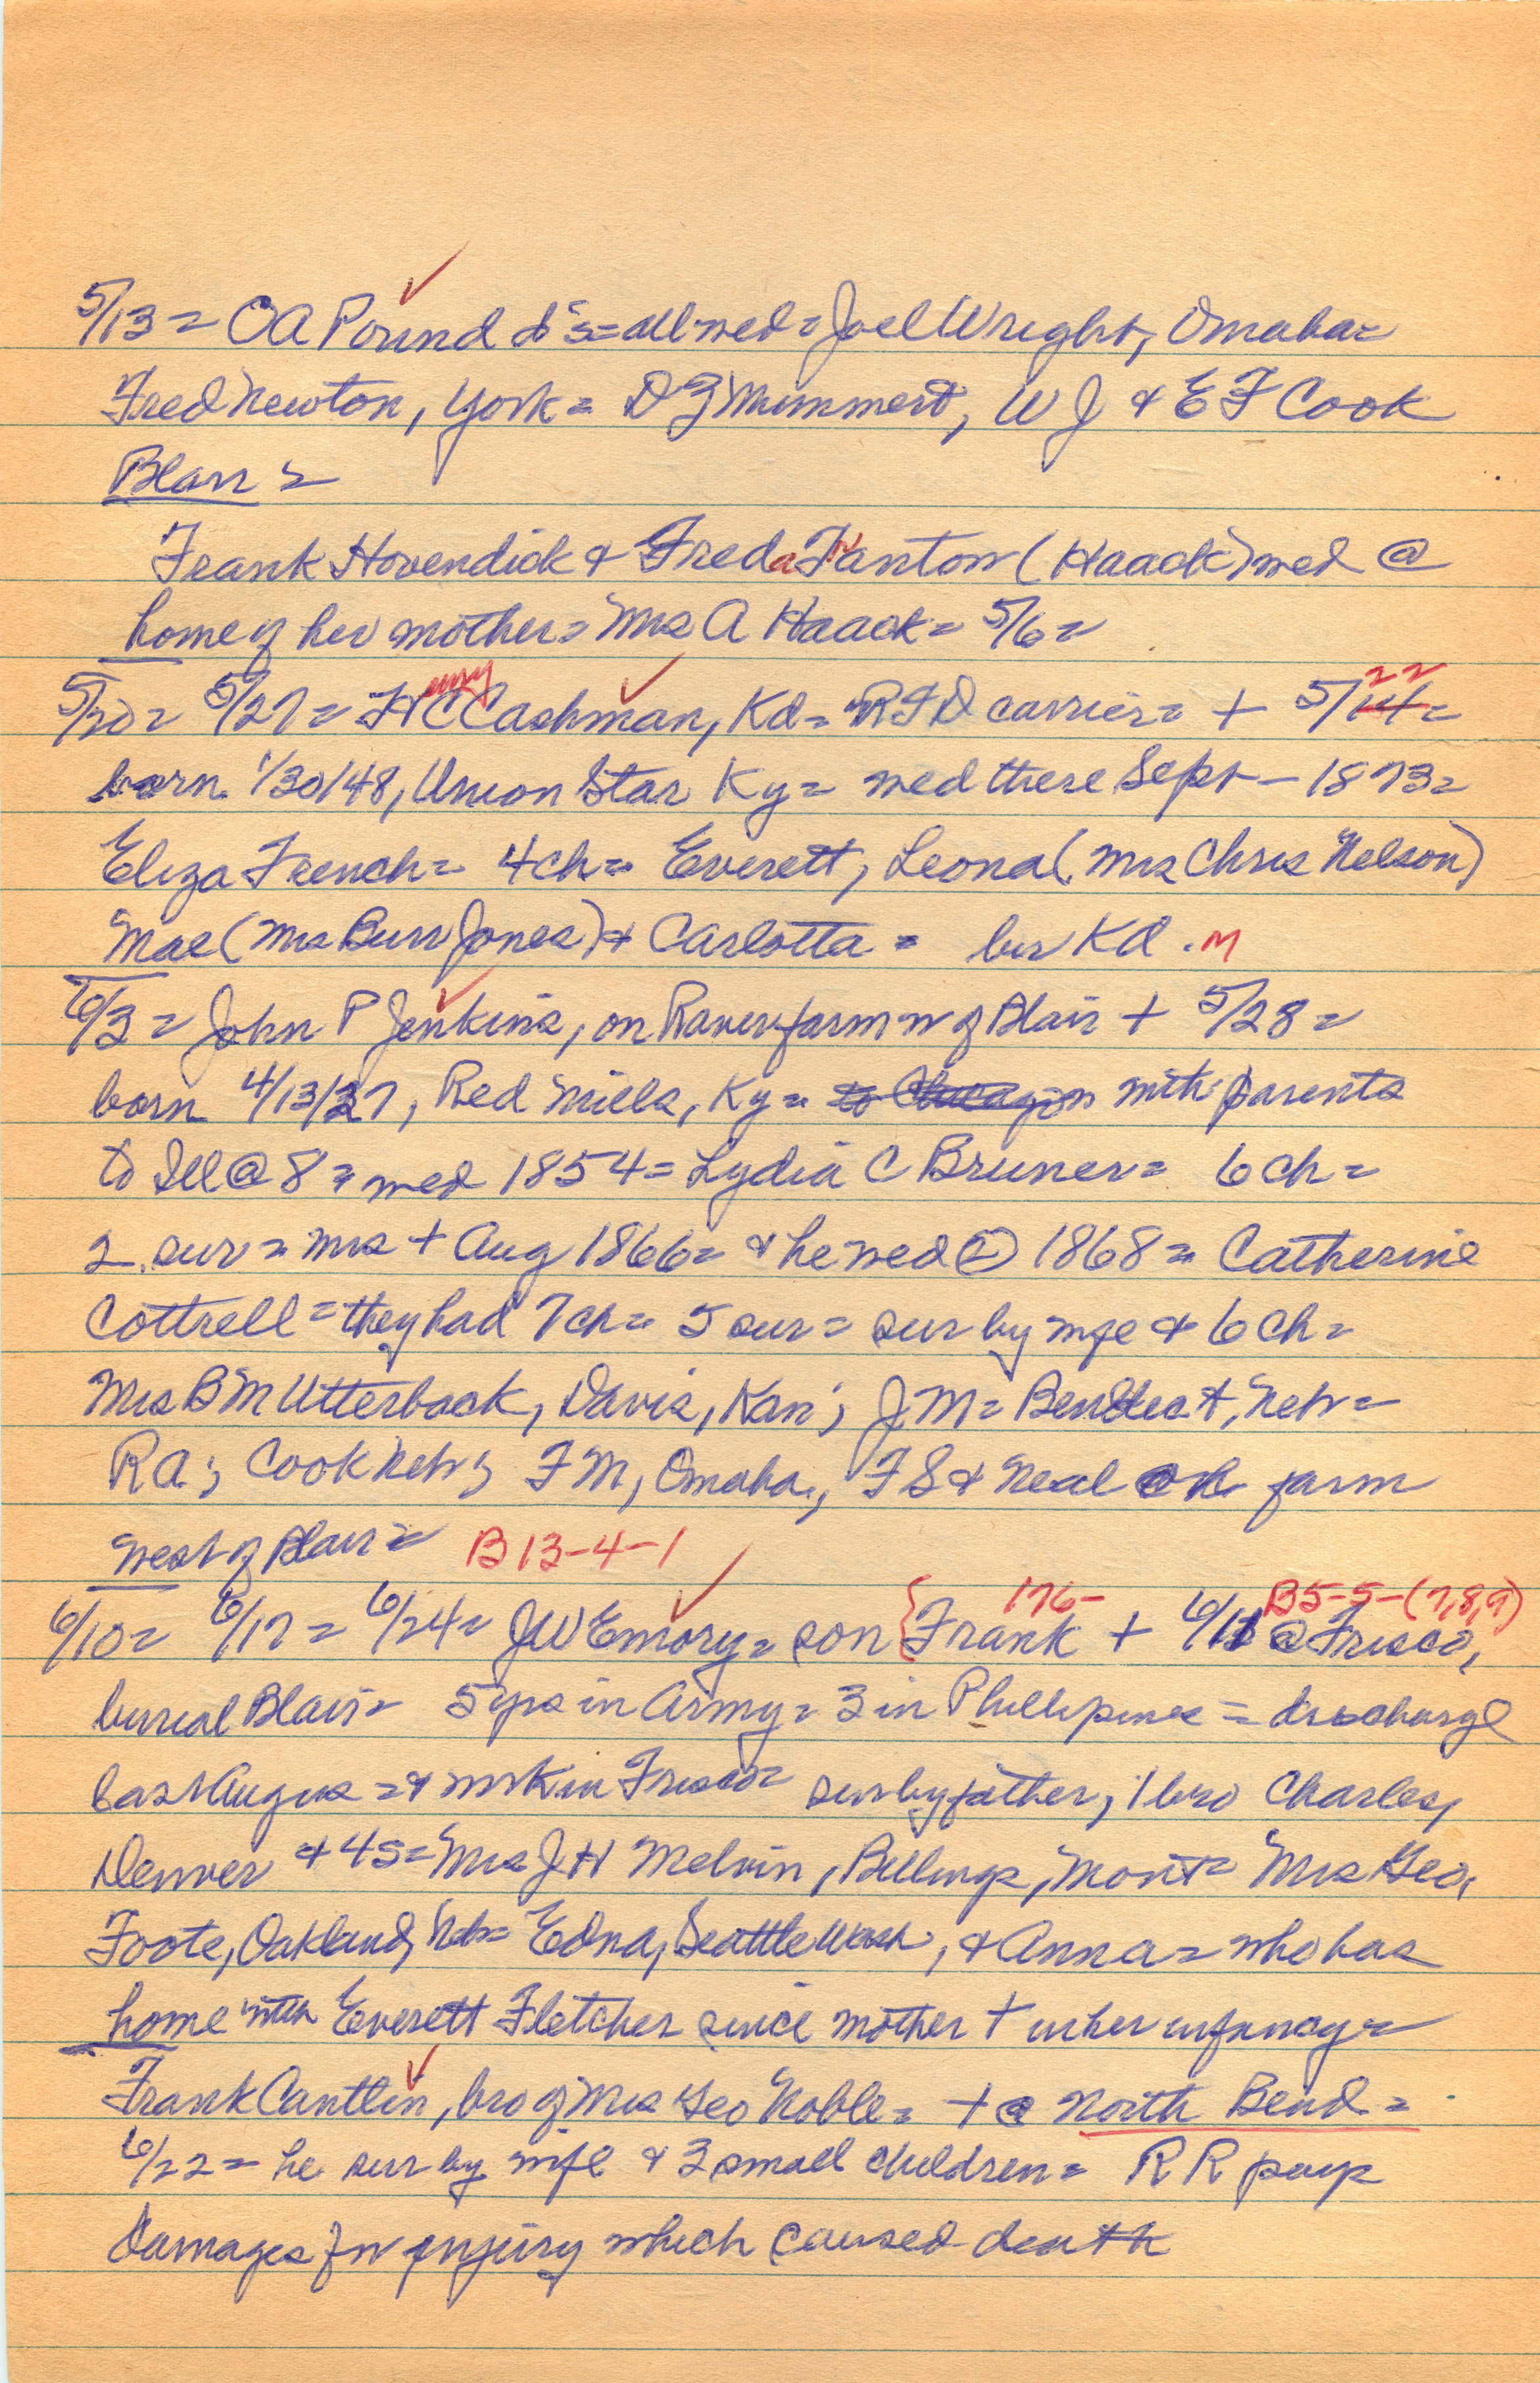 5/13 = OA Pound d's = all wed = Joel Wright, Omaha =
Fred Newton, York = D Z Mummert, W J & E F Cook
Blair =
Frank Hovendick & Freda Fanton (Haack) wed @
home of her mother = Mrs A Haack = 5/6 =
5/20 = 5/27 = H C Cashman, Kd = RFD carrier = + 5/14 = 22
born 1/30/48, Union Star Ky = wed there Sept - 1873 =
Eliza French = 4 ch = Everett, Leona (Mrs Chris Nelson)
Mae (Mrs Burr Jones) & Carlotta = bur Kd . M
6/3 = John P Jenkins, on Raver farm w of Blair + 5/28 =
born 4/13/27, Red Mills, Ky = with parents
to Ill @ 8 = wed 1854 = Lydia C Bruner = 6 ch =
2 sur = Mrs + Aug 1866 = & he wed ② 1868 = Catherine
Cottrell = they had 7 ch = 5 sur = sur by wife & 6 ch =
Mrs B M Utterback, Davis, Kan; J M = Neb =
R A; Cook Neb; F M, Omaha, F S & Neal on farm
west of Blair = B 13-4-1
6/10 = 6/17 = 6/24 = J W Emory = son { Frank 176- + 6/11 @ Frisco, B5-5-(7,8,9)
burial Blair = 5 yrs in Army = 3 in Phillipines = discharge
last Augus = & work in Frisco = sur by father, 1 bro Charles,
Denver & 4 s = Mrs J H Melvin, Billings, Mont = Mrs Geo,
Foote, Oakland, Neb = Edna, Seattle Wash, & Anna = who has
home with Everett Fletcher since mother + in her infancy =
Frank Cantlin, bro of Mrs Geo Noble = + @ North Bend =
6/22 = he sur by wife & 3 small children = R R pays
damages for injury which caused death